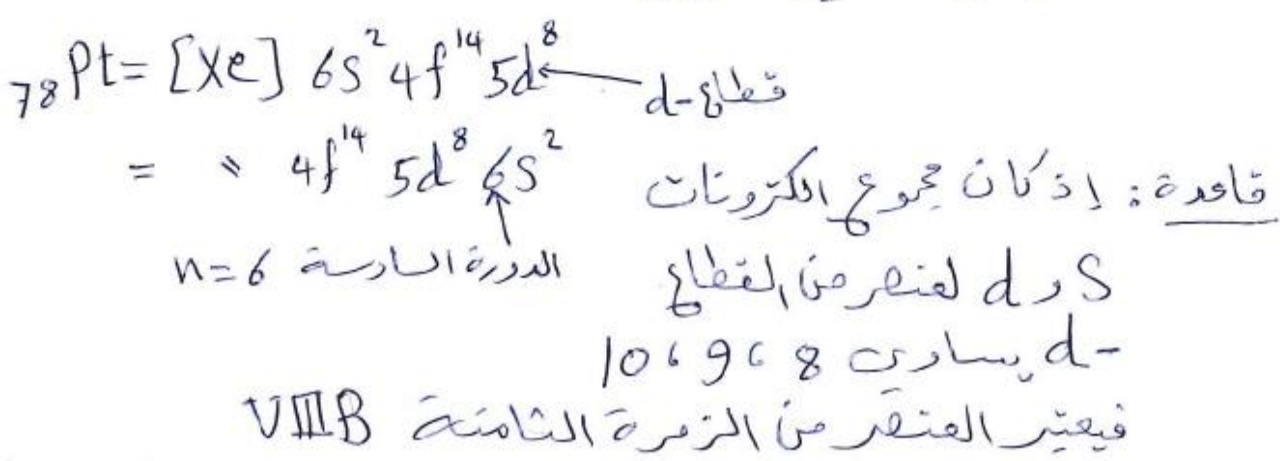 ₇₈Pt= [Xe] 6s² 4f¹⁴ 5d⁸ ← قطاع-d
= " 4f¹⁴ 5d⁸ 6s²
الدورة السادسة n=6
قاعدة: إذ كان مجموع الكترونات
S و d لعنصر من القطاع
-d يساوي 8، 9، 10
فيعتبر العنصر من الزمرة الثامنة VIIIB